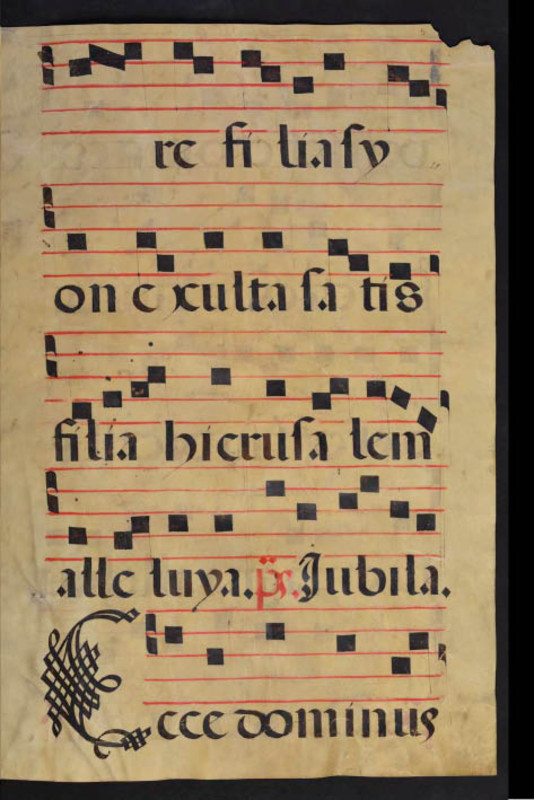 re fi lia sy
on e xulta sa tis
filia hieru sa lem
alle luya. ps. Jubila.
Ecce dominus